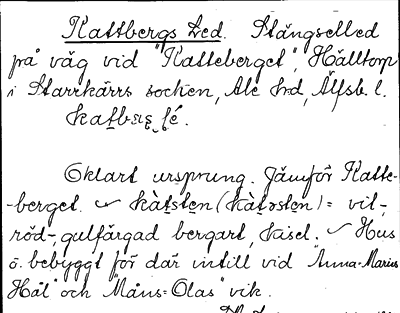 Kattbergs Led. Stängselled
på väg vid "Katteberget", Hålltorp
i Starrkärrs socken, Ale hd, Älfsb. l.
Oklart ursprung. Jämför Katte-
-berget. kàtstɛn (kàtəstɛn) = vit-
röd-gulfärgad bergart, kisel. Hus
o. bebyggt för där intill vid "Anna-Marius
Hål" och "Måns-Olas" vik.